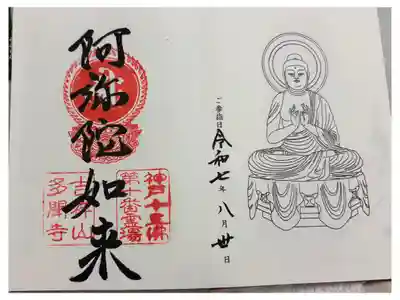 ご参詣日 令和七年 八月 卅日
阿弥陀如来
神戸十三佛
第十番霊場
吉祥山
多聞寺